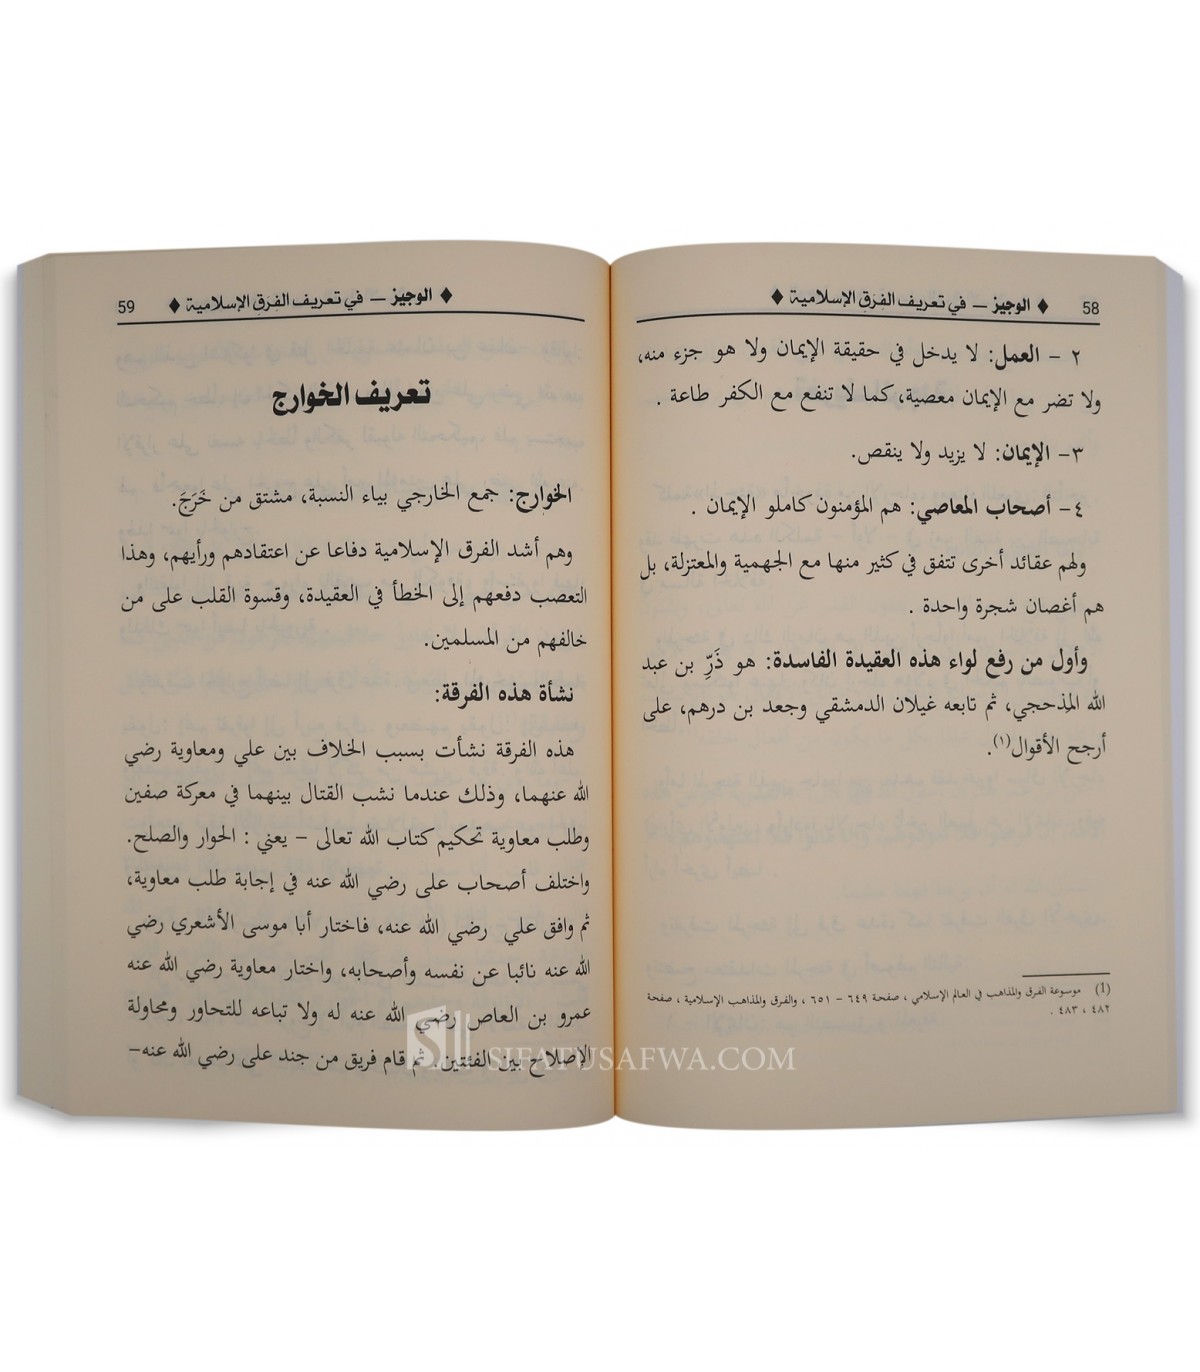 58 ♦ الوجيز – في تعريف الفِرَق الإسلامية ♦
٢ – العمل: لا يدخل في حقيقة الإيمان ولا هو جزء منه،
ولا تضر مع الإيمان معصية، كما لا تنفع مع الكفر طاعة .
٣– الإيمان: لا يزيد ولا ينقص.
٤– أصحاب المعاصي: هم المؤمنون كاملو الإيمان .
ولهم عقائد أخرى تتفق في كثير منها مع الجهمية والمعتزلة، بل
هم أغصان شجرة واحدة .
وأول من رفع لواء هذه العقيدة الفاسدة: هو ذَرِّ بن عبد
الله المِذحجي، ثم تابعه غيلان الدمشقي وجعد بن درهم، على
أرجح الأقوال(١).
(1) موسوعة الفرق والمذاهب في العالم الإسلامي ، صفحة ٦٤٩ – ٦٥١ ، والفرق والمذاهب الإسلامية ، صفحة
٤٨٢ ، ٤٨٣ .
♦ الوجيز – في تعريف الفِرَق الإسلامية ♦ 59
تعريف الخوارج
الخوارج: جمع الخارجي بياء النسبة، مشتق من خَرَجَ.
وهم أشد الفرق الإسلامية دفاعا عن اعتقادهم ورأيهم، وهذا
التعصب دفعهم إلى الخطأ في العقيدة، وقسوة القلب على من
خالفهم من المسلمين.
نشأة هذه الفرقة:
هذه الفرقة نشأت بسبب الخلاف بين علي ومعاوية رضي
الله عنهما، وذلك عندما نشب القتال بينهما في معركة صفين
وطلب معاوية تحكيم كتاب الله تعالى – يعني : الحوار والصلح.
واختلف أصحاب على رضي الله عنه في إجابة طلب معاوية،
ثم وافق علي رضي الله عنه، فاختار أبا موسى الأشعري رضي
الله عنه نائبا عن نفسه وأصحابه، واختار معاوية رضي الله عنه
عمرو بن العاص رضي الله عنه له ولا تباعه للتحاور ومحاولة
الإصلاح بين الفئتين. ثم قام فريق من جند على رضي الله عنه–
SIFATUSAFWA.COM